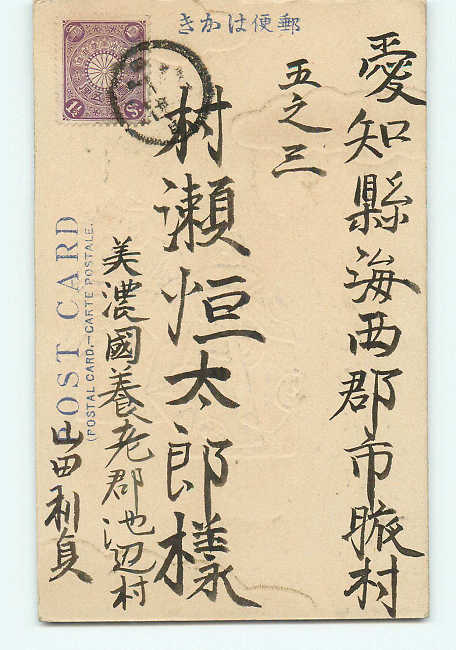 郵便はかき
愛知縣海西郡市腋村
五之三
村瀬恒太郎様
美濃國養老郡池辺村
山田利貞
POST CARD
(POSTAL CARD.-CARTE POSTALE.
1½ Sn